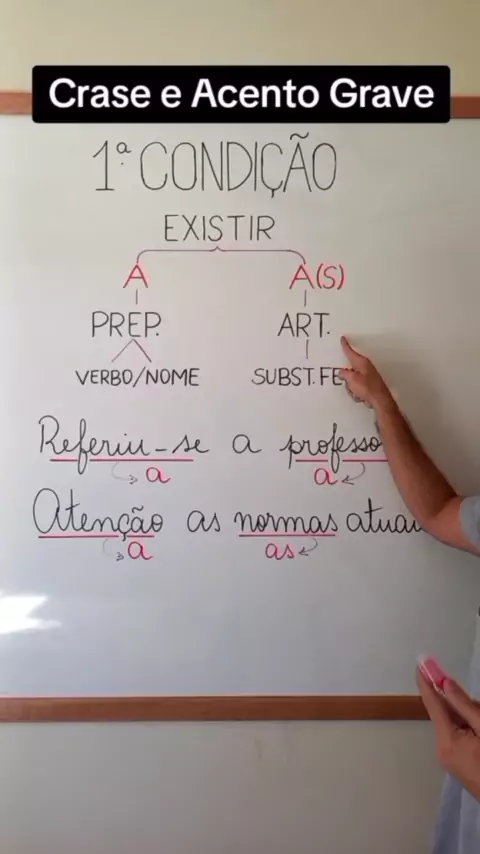 Crase e Acento Grave
1ª CONDIÇÃO
EXISTIR
A A(S)
PREP. ART.
VERBO/NOME SUBST. FE
Referiu-se a professo
a a
Atenção as normas atuai
a as